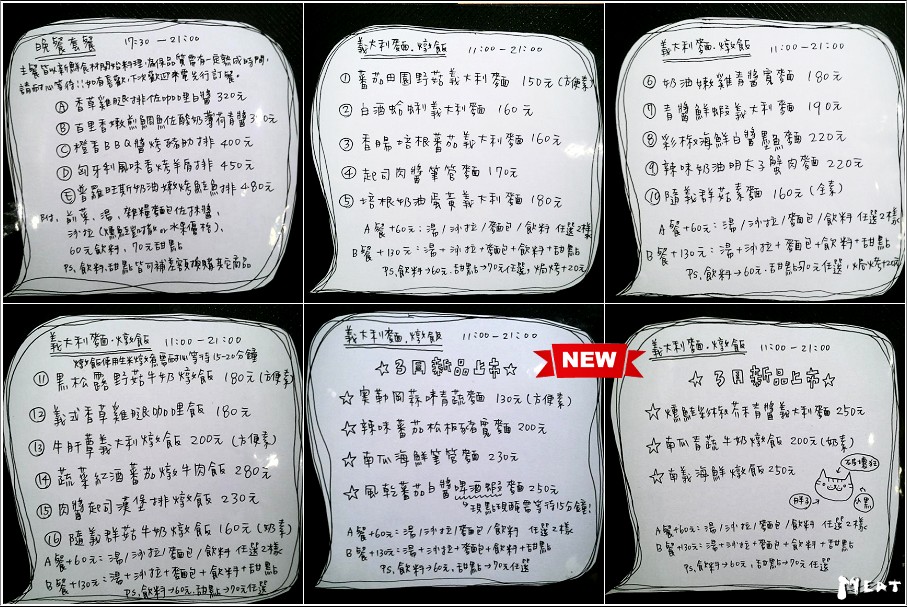 晚餐套餐 17:30 – 21:00
主餐皆以新鮮食材開始料理,為保品質需有一定製成時間,
請耐心等待!!如有喜歡,下次歡迎來電先行訂餐。
Ⓐ 香草雞腿排佐咖哩白醬 320元
Ⓑ 百里香嫩煎鯛魚佐酸奶薄荷青醬
Ⓒ 橙香BBQ醬烤豬肋排 400元
Ⓓ 匈牙利風味香烤羊肩排 450元
Ⓔ 普羅旺斯奶油嫩烤鮭魚排 480元
附:前菜、湯、雜糧麵包佐抹醬,
沙拉(燻鮭 or 水果優格),
60元飲料,70元甜點
PS.飲料.甜點皆可補差額換購其它商品
義大利麵.燉飯 11:00 – 21:00
① 蕃茄田園野菇義大利麵 150元(方便素)
② 白酒蛤蜊義大利麵 160元
③ 香腸培根蕃茄義大利麵 160元
④ 起司肉醬筆管麵 170元
⑤ 培根奶油蛋黃義大利麵 180元
A餐+60元:湯/沙拉/麵包/飲料 任選2樣
B餐+130元:湯+沙拉+麵包+飲料+甜點
PS.飲料→60元.甜點→70元任選,焗烤+20元
義大利麵.燉飯 11:00 – 21:00
⑥ 奶油嫩雞青醬寬麵 180元
⑦ 青醬鮮蝦義大利麵 190元
⑧ 彩椒海鮮白醬墨魚麵 220元
⑨ 辣味奶油明太子蟹肉麵 220元
⑩ 隨義群菇素麵 160元(全素)
A餐+60元:湯/沙拉/麵包/飲料 任選2樣
B餐+130元:湯+沙拉+麵包+飲料+甜點
PS.飲料→60元.甜點→70元任選,焗烤+20元
義大利麵.燉飯 11:00 – 21:00
燉飯使用生米燉煮需耐心等待15-20分鐘
⑪ 黑松露野菇牛奶燉飯 180元(方便素)
⑫ 義式香草雞腿咖哩飯 180元
⑬ 牛肝蕈義大利燉飯 200元(方便素)
⑭ 蔬菜紅酒蕃茄燉牛肉飯 280元
⑮ 肉醬起司漢堡排燉飯 230元
⑯ 隨義群菇牛奶燉飯 160元(奶素)
A餐+60元:湯/沙拉/麵包/飲料 任選2樣
B餐+130元:湯+沙拉+麵包+飲料+甜點
PS.飲料→60元.甜點→70元任選
義大利麵.燉飯 11:00 – 21:00
NEW
☆多國新品上市☆
☆ 寒勒岡蒜味青蔬麵 130元(方便素)
☆ 辣味蕃茄松板豬寬麵 200元
☆ 南瓜海鮮筆管麵 230元
☆ 風乾蕃茄白醬啤酒蝦麵 250元
現點現做需等待15分鐘!
A餐+60元:湯/沙拉/麵包/飲料 任選2樣
B餐+130元:湯+沙拉+麵包+飲料+甜點
PS.飲料→60元.甜點→70元任選
義大利麵.燉飯 11:00 – 21:00
☆多月新品上市☆
☆ 燻鮭彩椒芥末青醬義大利麵 250元
☆ 南瓜青蔬牛奶燉飯 200元(奶素)
☆ 南義海鮮燉飯 250元
破壞狂
胖子
大黑
A餐+60元:湯/沙拉/麵包/飲料 任選2樣
B餐+130元:湯+沙拉+麵包+飲料+甜點
PS.飲料→60元.甜點→70元任選